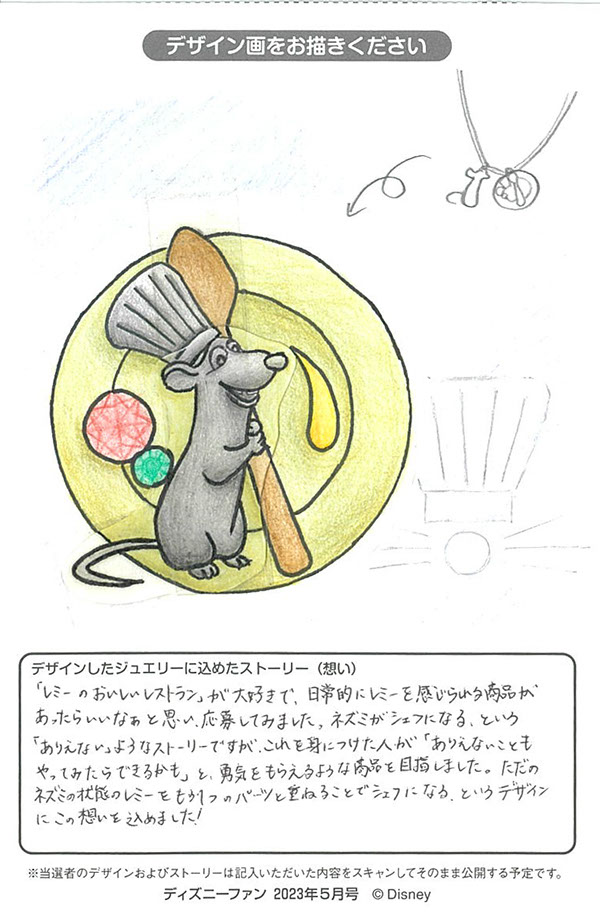 デザイン画をお描きください
デザインしたジュエリーに込めたストーリー（想い）
「レミーのおいしいレストラン」が大好きで、日常的にレミーを感じられる商品が
あったらいいなぁと思い、応募してみました。ネズミがシェフになる、という
「ありえない」ようなストーリーですが、これを身につけた人が「ありえないことも
やってみたらできるかも」と、勇気をもらえるような商品を目指しました。ただの
ネズミの状態のレミーをもう1つのパーツと重ねることでシェフになる、というデザイン
にこの想いを込めました！
※当選者のデザインおよびストーリーは記入いただいた内容をスキャンしてそのまま公開する予定です。
ディズニーファン 2023年5月号 ©Disney